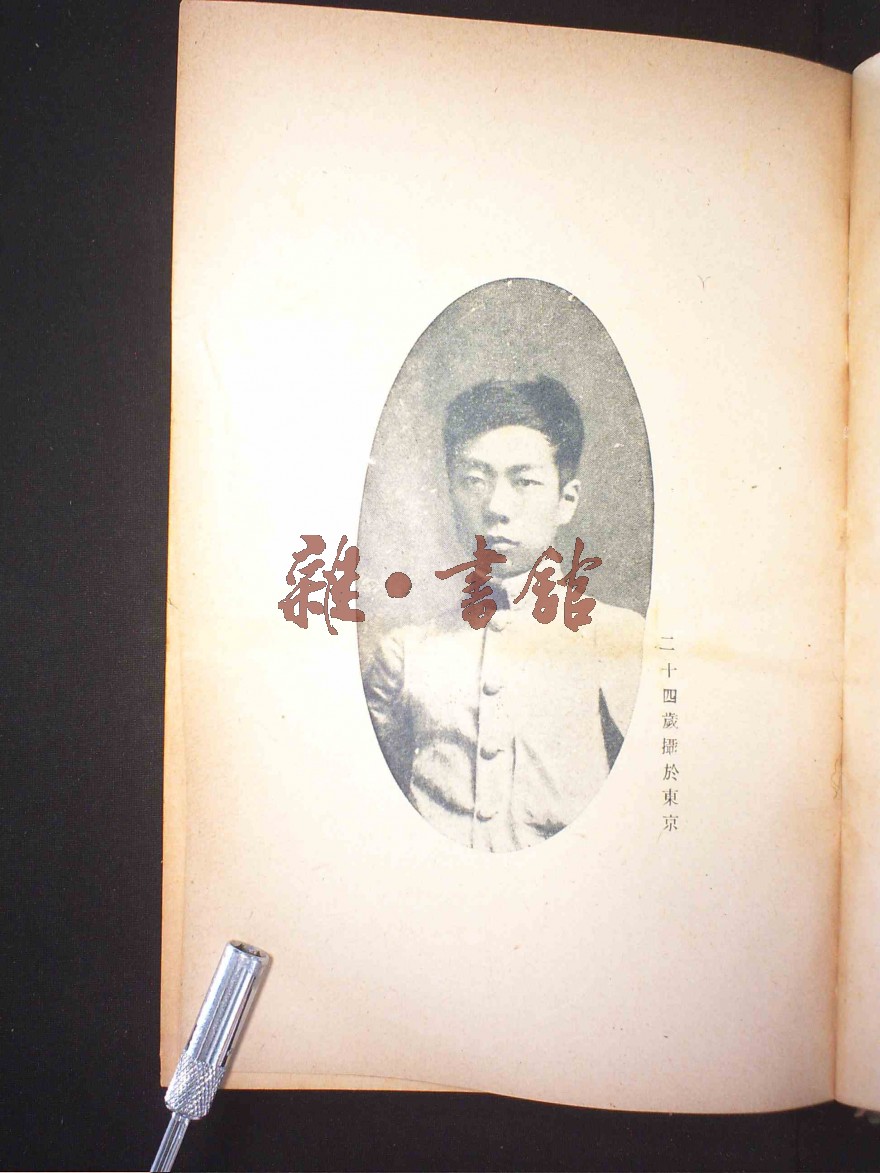 雜·書館
二十四歲攝於東京